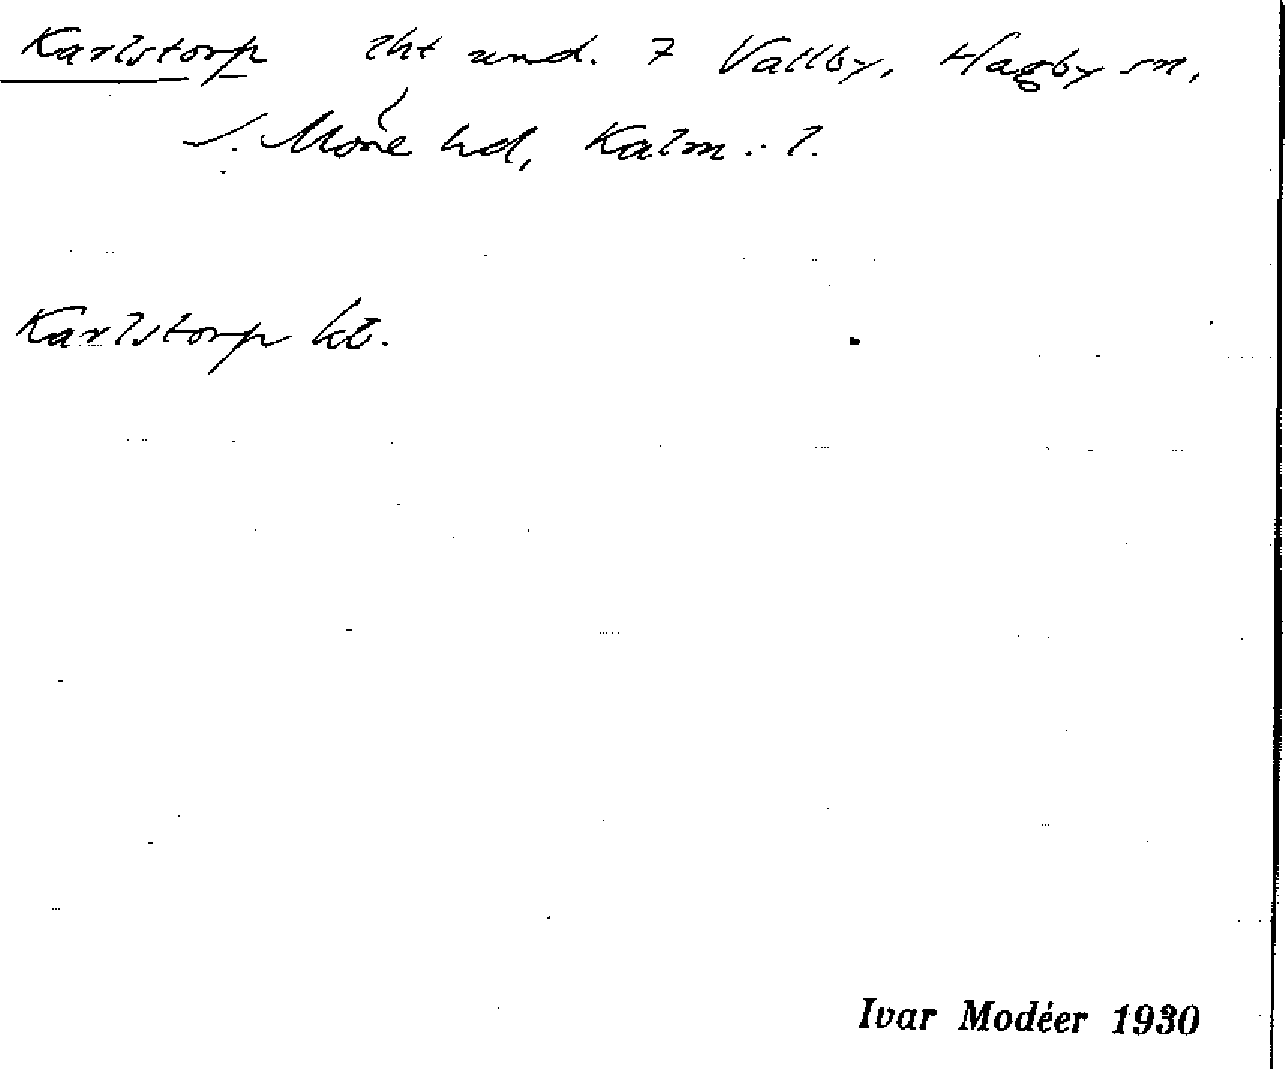 Karlstorp lht und. 7 Vallby, Hagby sn,
S. Möre hd, Kalm. l.
Karlstorp kt.
Ivar Modéer 1930